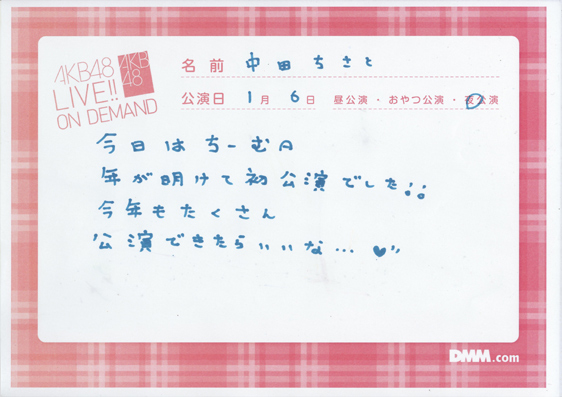 AKB48
LIVE!!
ON DEMAND
AKB
48
名前 中田ちさと
公演日 1月 6日 昼公演・おやつ公演・夜公演
今日はちーむA
年が明けて初公演でした!!
今年もたくさん
公演できたらいいな…♥"
DMM.com